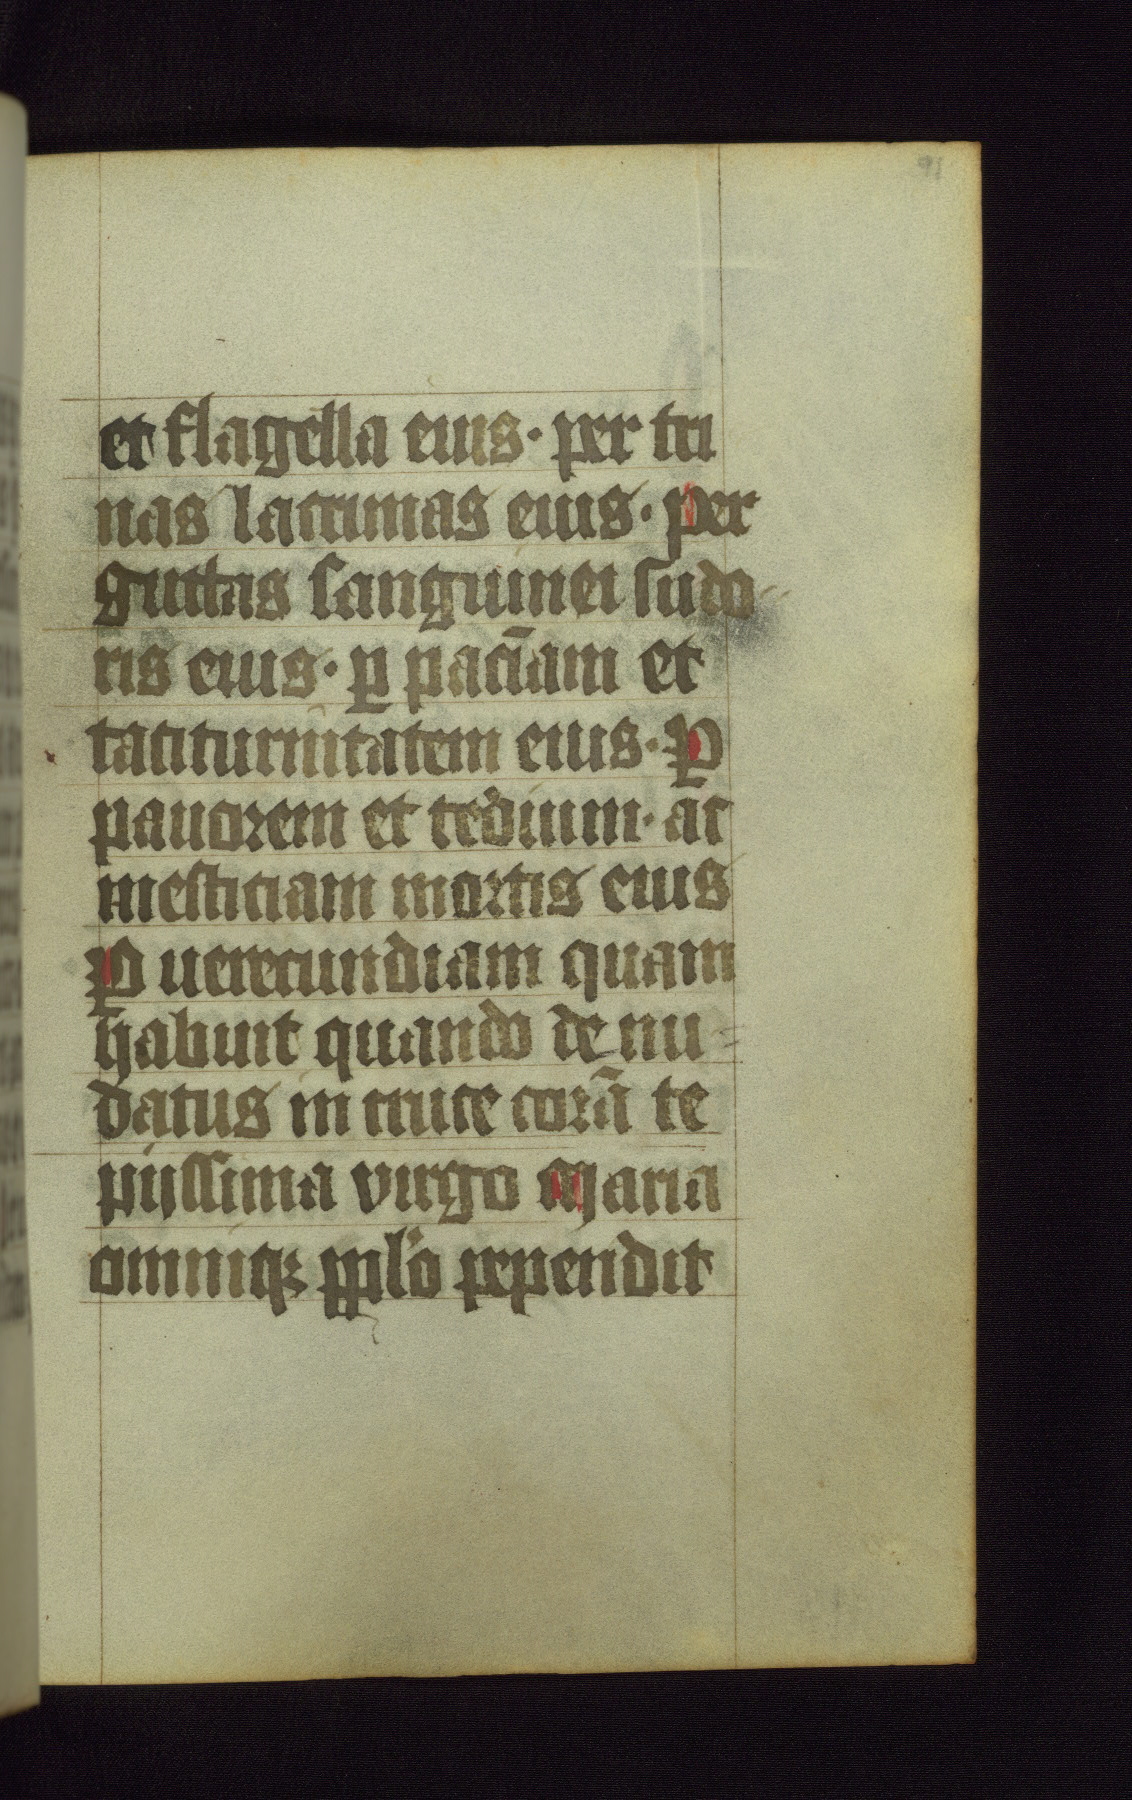 91
et flagella eius· per tri
nas lacrimas eius· per
guttas sanguinei sudo
ris eius· ꝑ paciā̄m et
taciturnitatem eius· Ꝑ
pauorem et tedium· ac
mesticiam mortis eius
Ꝑ uerecundiam quam
habuit quando de nu-
datus in cruce corā te
pijssima virgo Maria
omniqꝫ ppl'o pependit